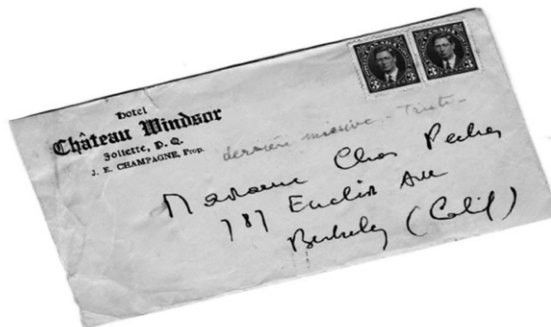 Hotel
Château Windsor
Joliette, P. Q.
J. E. CHAMPAGNE, Prop.
3 3 3 3
dernière missive - Triste -
Madame Chas Pecher
787 Euclid Ave
Berkeley (Calif)